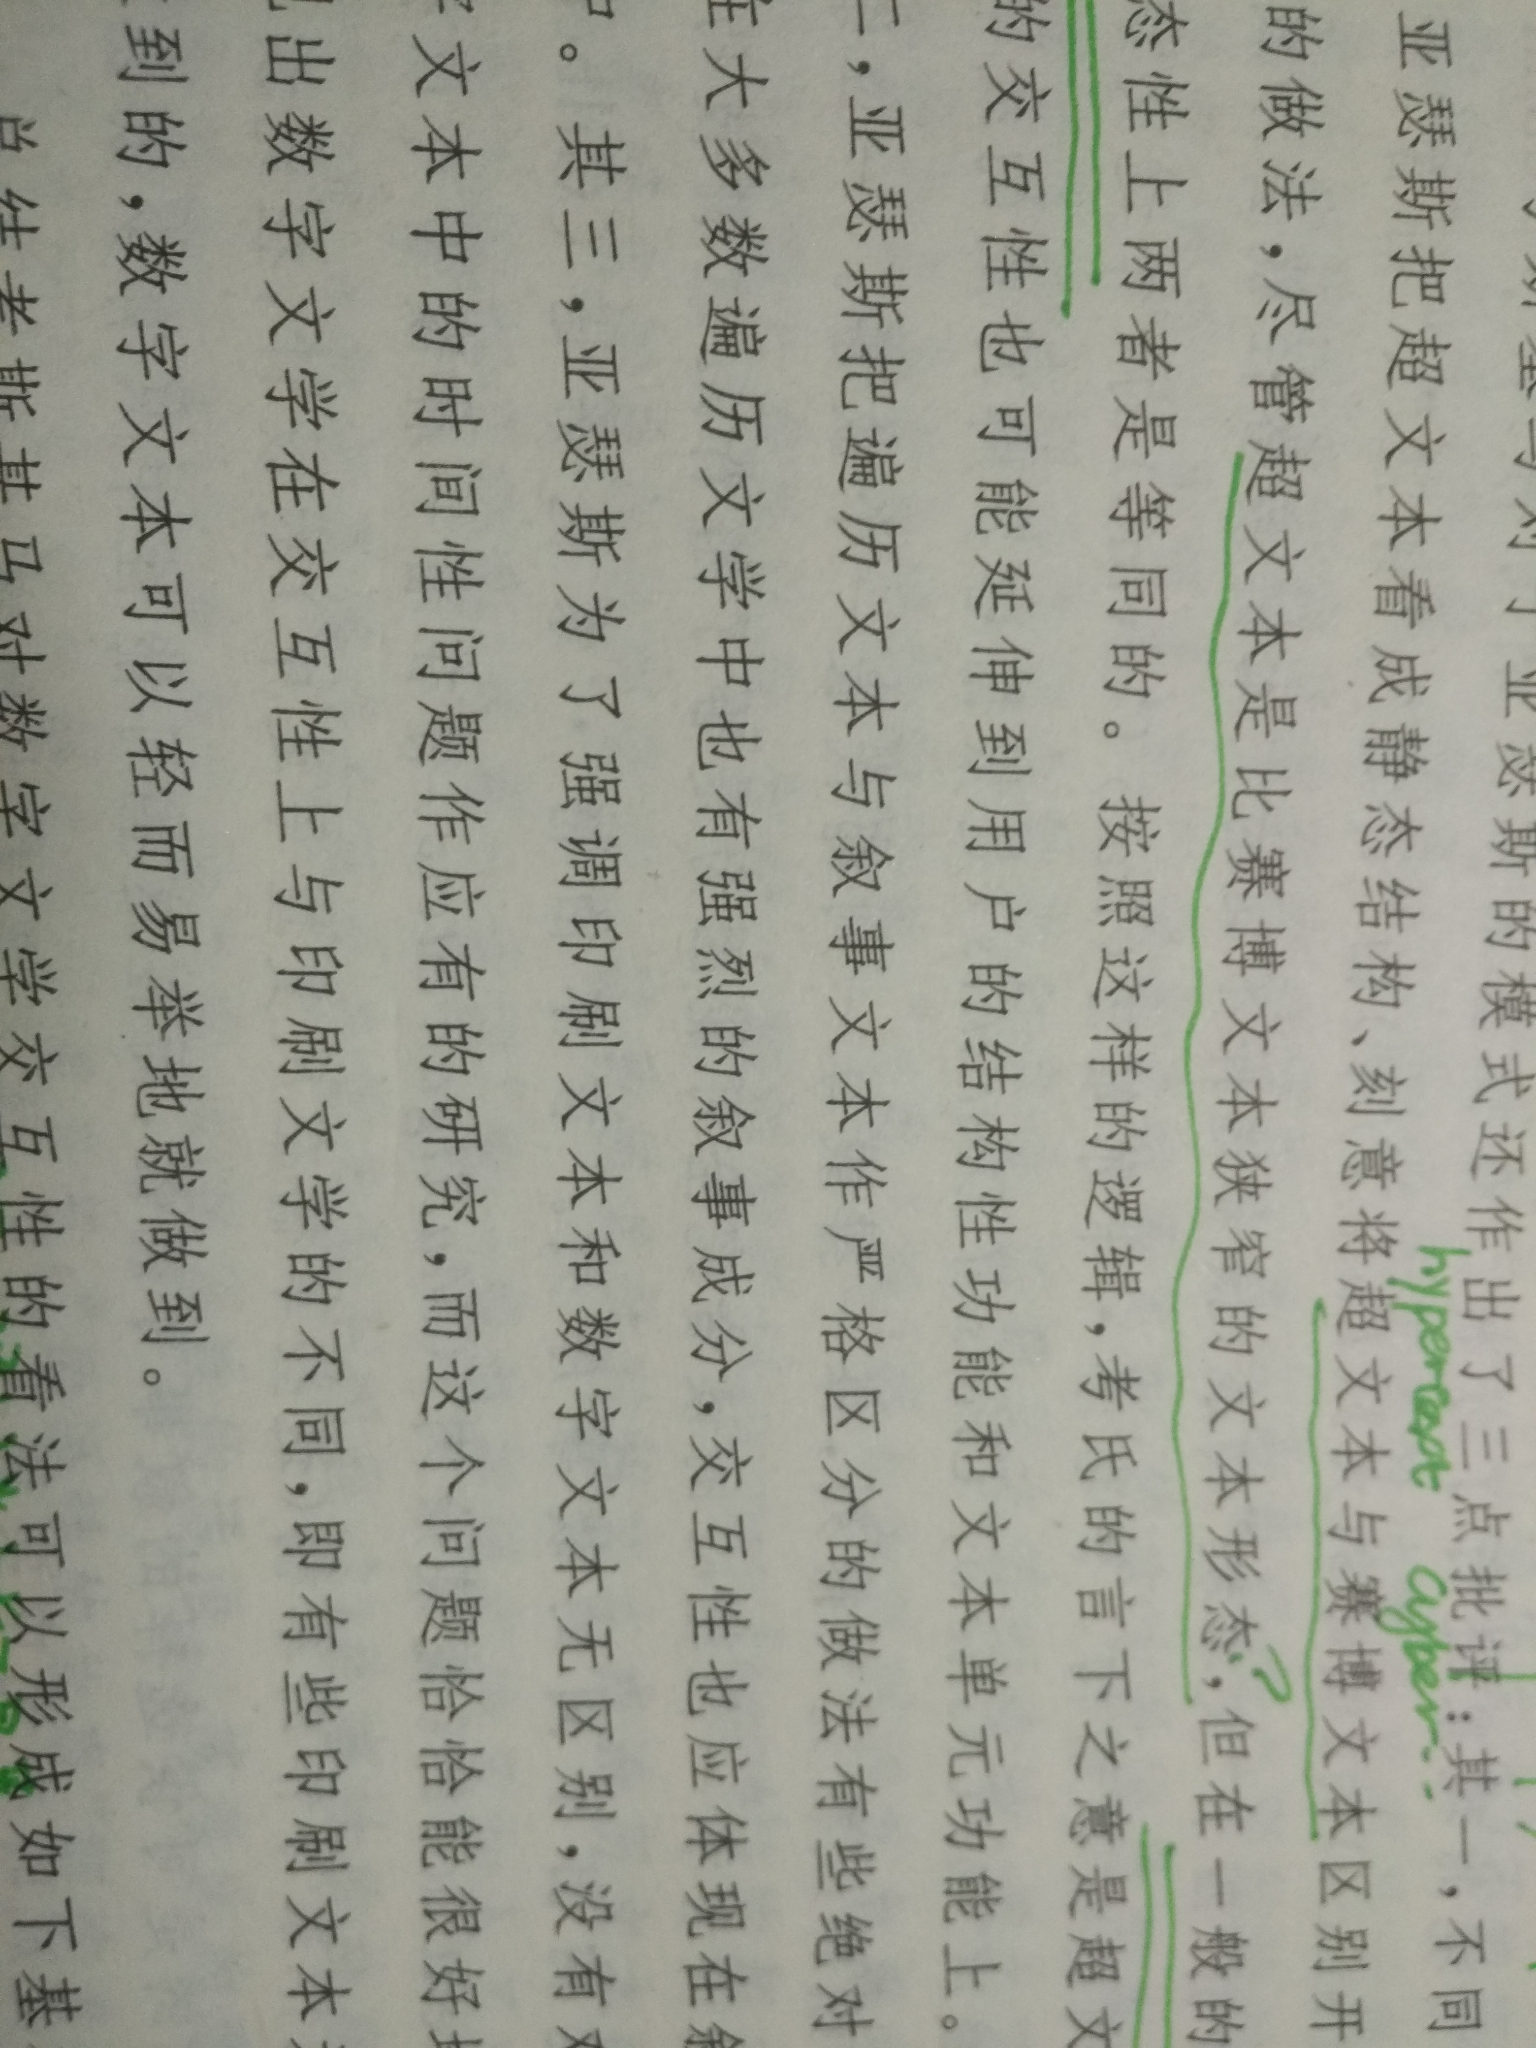 斯基马对于亚瑟斯的模式还作出了三点批评:其一,不同
hypertext cyber..
亚瑟斯把超文本看成静态结构、刻意将超文本与赛博文本区别开
的做法,尽管超文本是比赛博文本狭窄的文本形态?,但在一般的
态性上两者是等同的。按照这样的逻辑,考氏的言下之意是超文
的交互性也可能延伸到用户的结构性功能和文本单元功能上。
二,亚瑟斯把遍历文本与叙事文本作严格区分的做法有些绝对
在大多数遍历文学中也有强烈的叙事成分,交互性也应体现在叙
中。其三,亚瑟斯为了强调印刷文本和数字文本无区别,没有对
字文本中的时间性问题作应有的研究,而这个问题恰恰能很好地
现出数字文学在交互性上与印刷文学的不同,即有些印刷文本
到的,数字文本可以轻而易举地就做到。
总结考斯基马对数字文学交互性的看法可以形成如下基